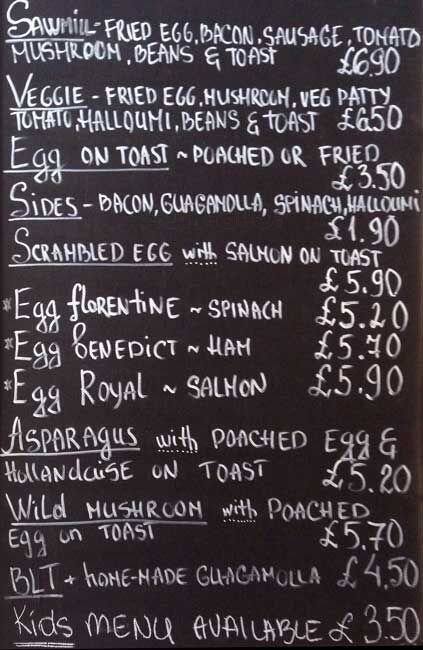 Sawmill - FRIED EGG, BACON, SAUSAGE, TOMATO
MUSHROOM, BEANS & TOAST £6.90
VEGGIE - FRIED EGG, MUSHROOM, VEG PATTY
TOMATO, HALLOUMI, BEANS & TOAST £6.50
Egg ON TOAST ~ POACHED OR FRIED
£3.50
SIDES - BACON, GUAGAMOLLA, SPINACH, HALLOUMI
£1.90
SCRAMBLED EGG with SALMON ON TOAST
£5.90
*Egg florentine ~ SPINACH £5.20
*Egg BENEDICT ~ HAM £5.70
*Egg Royal ~ SALMON £5.90
ASPARAGUS with POACHED Egg &
Hollandaise ON TOAST £5.20
Wild MUSHROOM with POACHED
Egg on TOAST £5.70
BLT + HOME-MADE GUAGAMOLLA £4.50
Kids MENU AVAILABLE £3.50